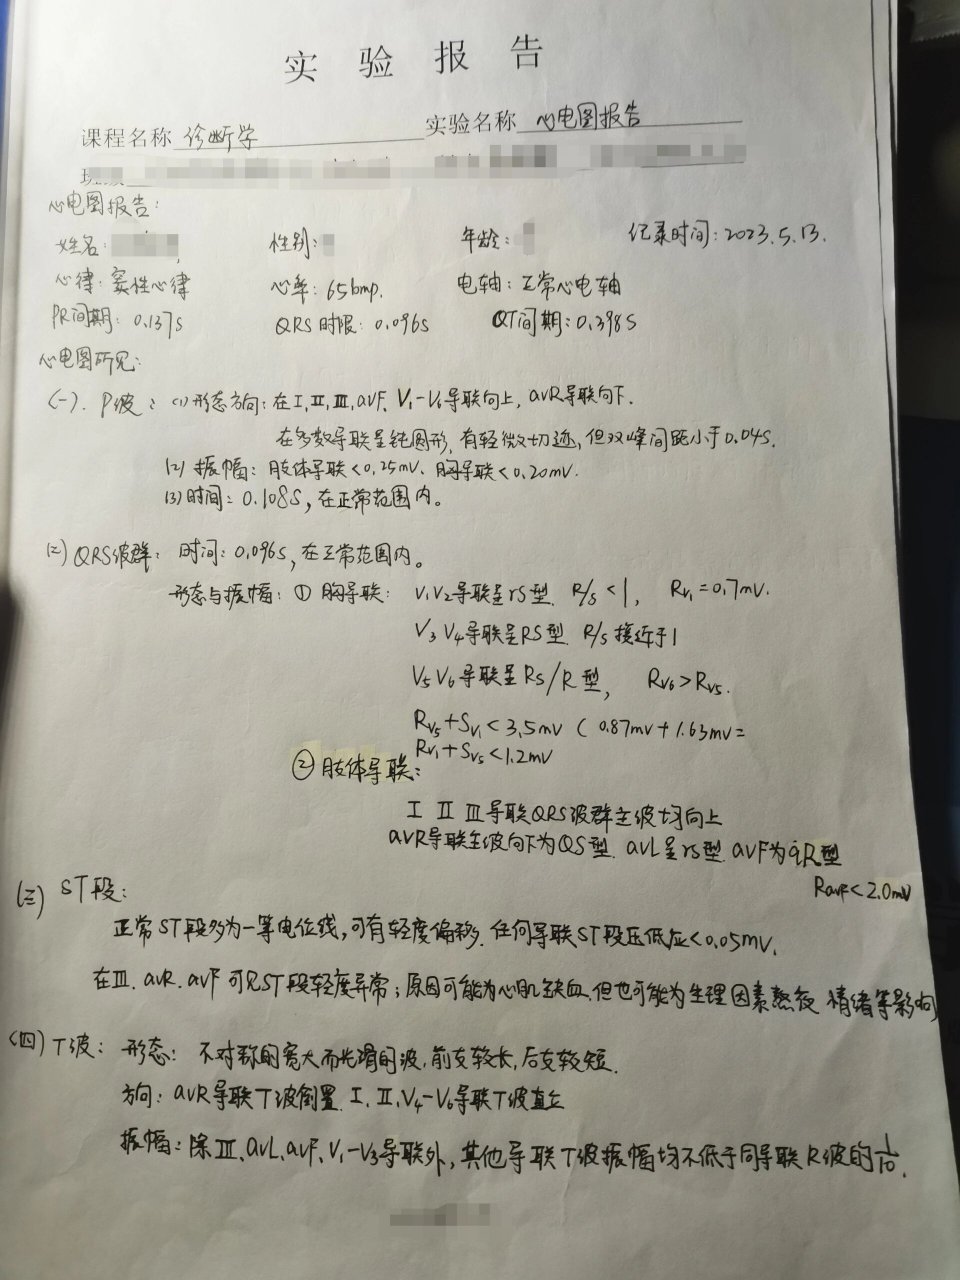 实验报告
课程名称 诊断学 实验名称 心电图报告
心电图报告:
姓名: 性别: 年龄: 纪录时间:2023.5.13.
心律:窦性心律 心率:65bmp. 电轴:正常心电轴
PR间期:0.137s QRS时限:0.096s QT间期:0.398s
心电图所见:
(一).P波:(1)形态方向:在I、II、III、aVF、V1-V6导联向上,aVR导联向下.
在多数导联呈钝圆形,有轻微切迹,但双峰间距小于0.04s.
(2)振幅:肢体导联<0.25mV、胸导联<0.20mV.
(3)时间:0.108s,在正常范围内。
(2)QRS波群:时间:0.096s,在正常范围内。
形态与振幅:① 胸导联: V1V2导联呈rS型. R/S<1, RV1=0.7mV.
V3 V4导联呈RS型. R/S接近于1
V5 V6导联呈Rs/R型, RV6>RV5.
RV5+SV1<3.5mV (0.87mV+1.63mV=
RV1+SV5<1.2mV
② 肢体导联:
I II III导联QRS波群主波均向上
aVR导联主波向下为QS型. aVL呈rS型. aVF为qR型
RaVF<2.0mV
(三) ST段:
正常ST段多为一等电位线,可有轻度偏移.任何导联ST段压低应<0.05mV.
在III、aVR、aVF可见ST段轻度异常;原因可能为心肌缺血.但也可能为生理因素熬夜 情绪等影响
(四)T波:形态:不对称的宽大而光滑的波,前支较长,后支较短.
方向:aVR导联T波倒置.I、II、V4-V6导联T波直立
振幅:除III、aVL、aVF、V1-V3导联外,其他导联T波振幅均不低于同导联R波的1/10.